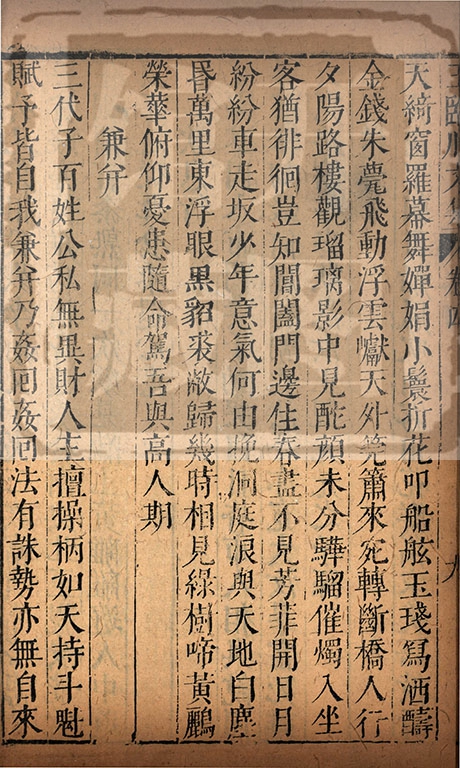 天綺窗羅幕舞嬋娟小鬟折花叩船舷玉琖寫酒醻
金錢朱甍飛動浮雲巘天外筦簫來宛轉斷橋人行
夕陽路樓觀瑠璃影中見酡顏未分驊騮催燭入坐
客猶徘徊豈知閶闔門邊住春盡不見芳菲開日月
紛紛車走坂少年意氣何由挽洞庭浪與天地白塵
昏萬里東浮眼黒貂裘敝歸幾時相見綠樹啼黃鸝
榮華俯仰憂患隨命駕吾與高人期
兼并
三代子百姓公私無異財人主擅操柄如天持斗魁
賦予皆自我兼并乃姦囘姦囘法有誅勢亦無自來